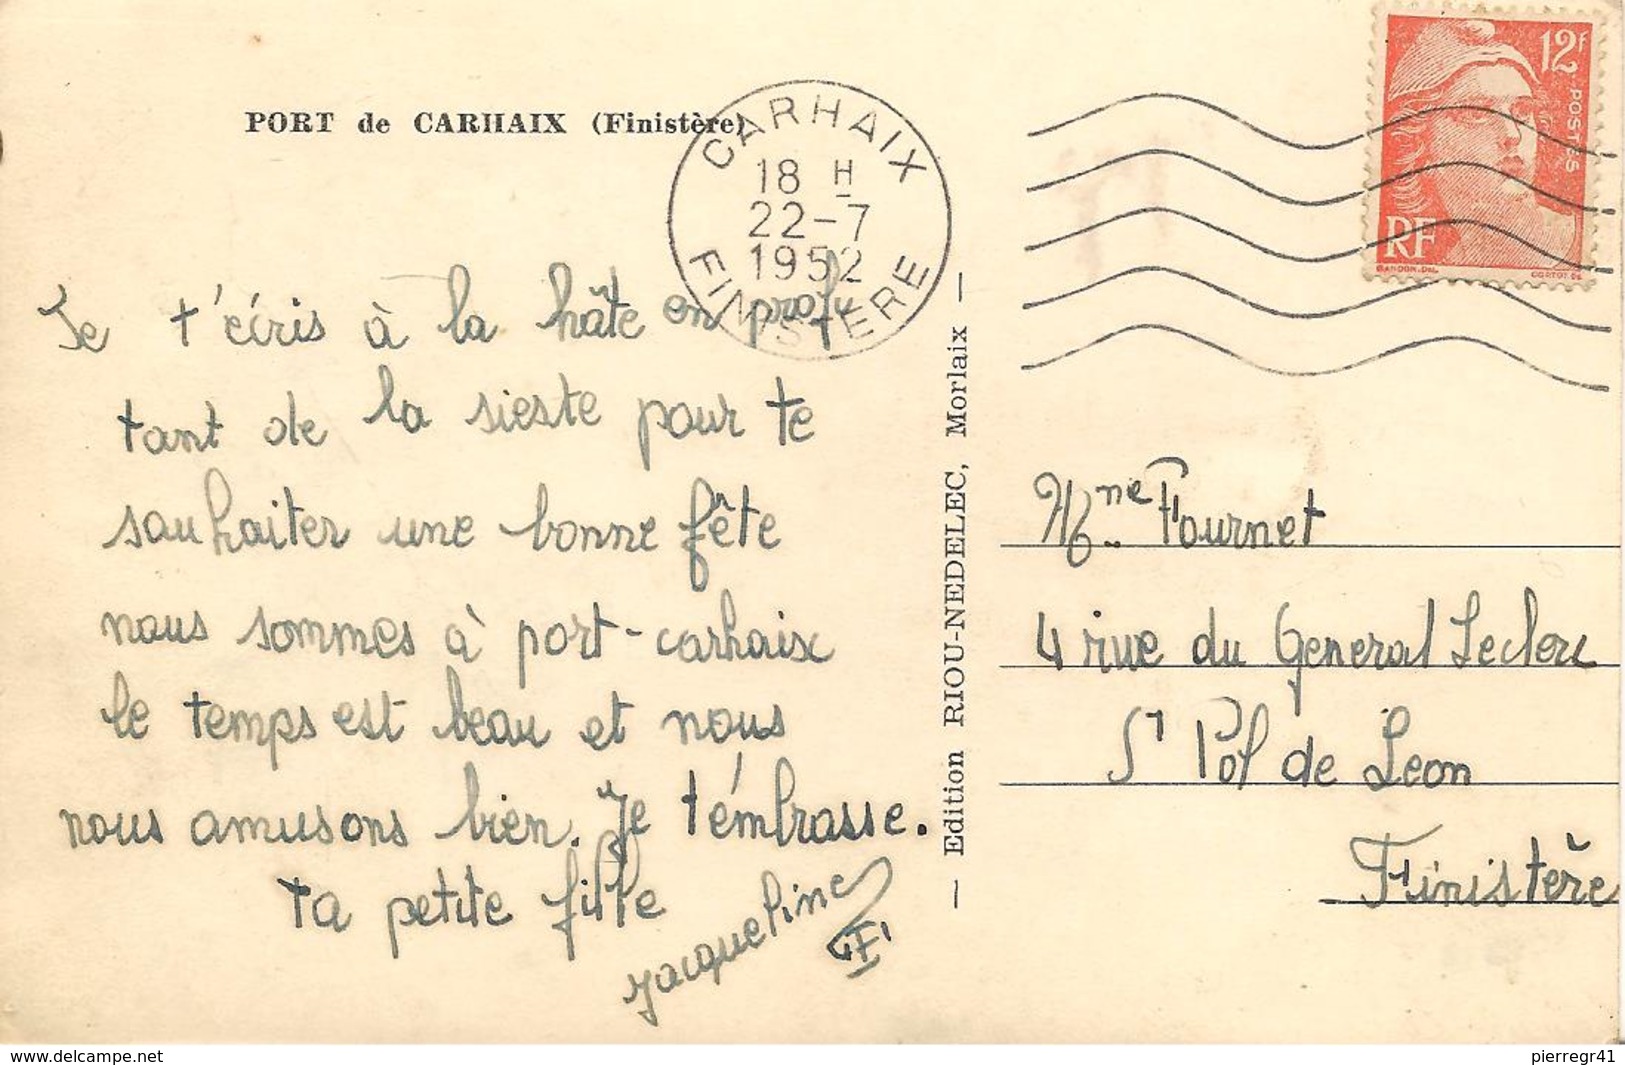 PORT de CARHAIX (Finistère)
CARHAIX
18 H
22-7
1952
FINISTERE
12F
POSTES
RF
GANDON.DEL.
CORTOT SC.
Je t'écris à la hâte en profi
tant de la sieste pour te
souhaiter une bonne fête
nous sommes à port-carhaix
le temps est beau et nous
nous amusons bien. Je t'émbrasse.
ta petite fille
Jacqueline
F
— Edition RIOU-NEDELEC, Morlaix —
Mme Fournet
4 rue du General Leclerc
St Pol de Leon
Finistère
www.delcampe.net
pierregr41